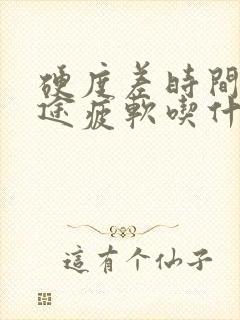 硬度差時間
途疲軟喫什
這有个仙子